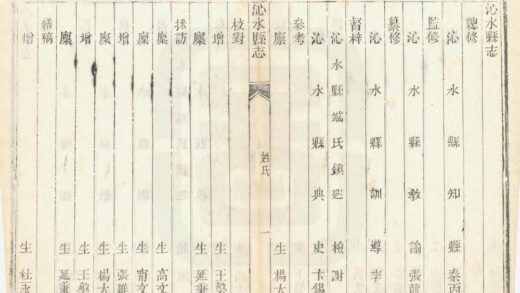 沁水縣志
總修
沁水縣知縣秦丙
監修
沁水縣教諭張
纂修
沁水縣訓導李
督梓
沁水縣端氏鎮巡檢謝
沁水縣典史卞錫
參考
廩生楊大
沁水縣志
姓氏
一
校對
增生王
廩生延秉
採訪
廩生高文
廩生甯文
增生張
廩生楊大
增生王
廩生延秉
繕稿
增生杜永